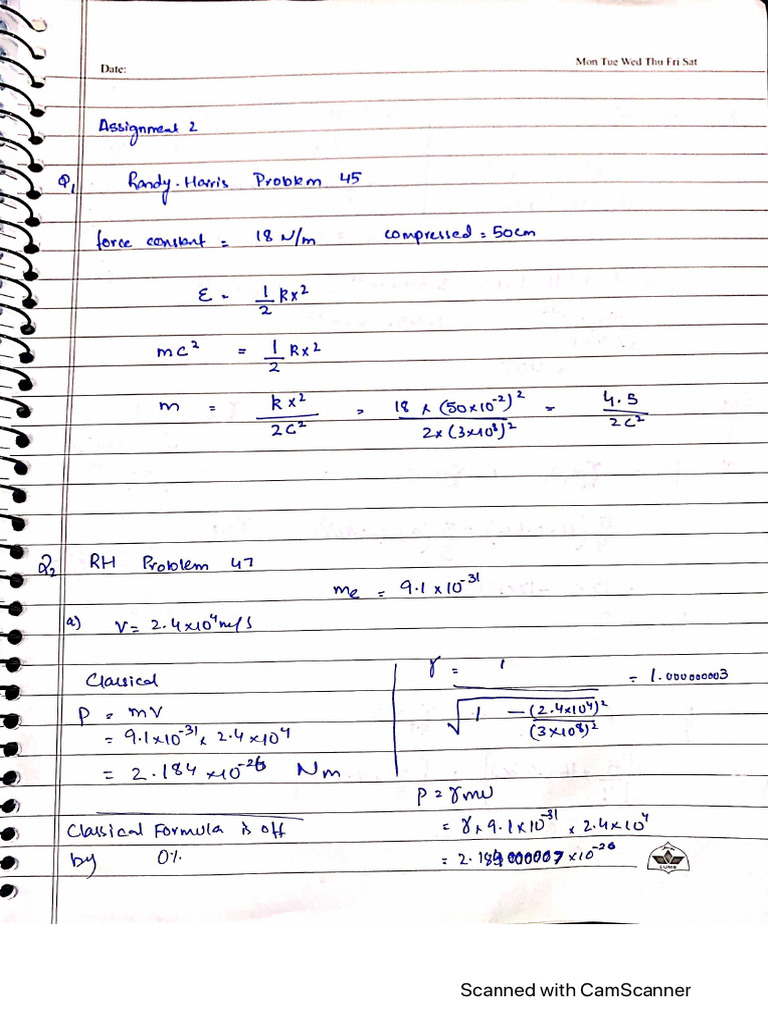 Date:
Mon Tue Wed Thu Fri Sat
Assignment 2
Q1 Randy-Harris Problem 45
force constant = 18 N/m compressed = 50cm
ε = 1/2 kx²
mc² = 1/2 kx²
m = kx²/2c² = 18 × (50×10⁻²)²/2×(3×10⁸)² = 4.5/2c²
Q2 RH Problem 47
me = 9.1 × 10⁻³¹
a) V = 2.4×10⁴ m/s
Classical
P = mv
= 9.1×10⁻³¹ × 2.4×10⁴
= 2.184 ×10⁻²⁶ Nm
Classical Formula is off
by 0%
γ = 1/√(1 - (2.4×10⁴)²/(3×10⁸)²) = 1.000000003
P = γmv
= γ × 9.1×10⁻³¹ × 2.4×10⁴
= 2.184000007 ×10⁻²⁶
LUMS
Scanned with CamScanner